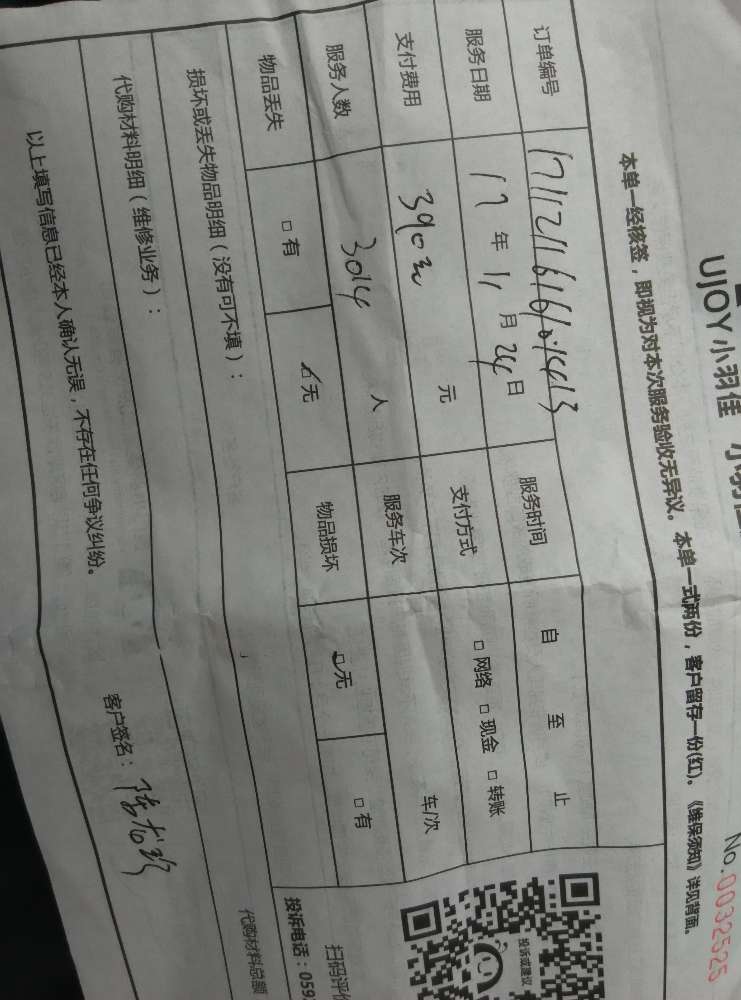 UJOY 小羽佳
No.00325525
本单一经核签，即视为对本次服务验收无异议。本单一式两份，客户留存一份(红)。《维保须知》详见背面。
订单编号
服务日期 17 年 11 月 24 日 服务时间 自 至 止
支付费用 390 元 支付方式 □ 网络 □ 现金 □ 转账
服务人数 人 服务车次 车/次
物品丢失 □ 有 □ 无 物品损坏 □ 无 □ 有
损坏或丢失物品明细（没有可不填）：
代购材料明细（维修业务）：
以上填写信息已经本人确认无误，不存在任何争议纠纷。
客户签名：
投诉或建议
扫码评价
投诉电话：059
代购材料总额